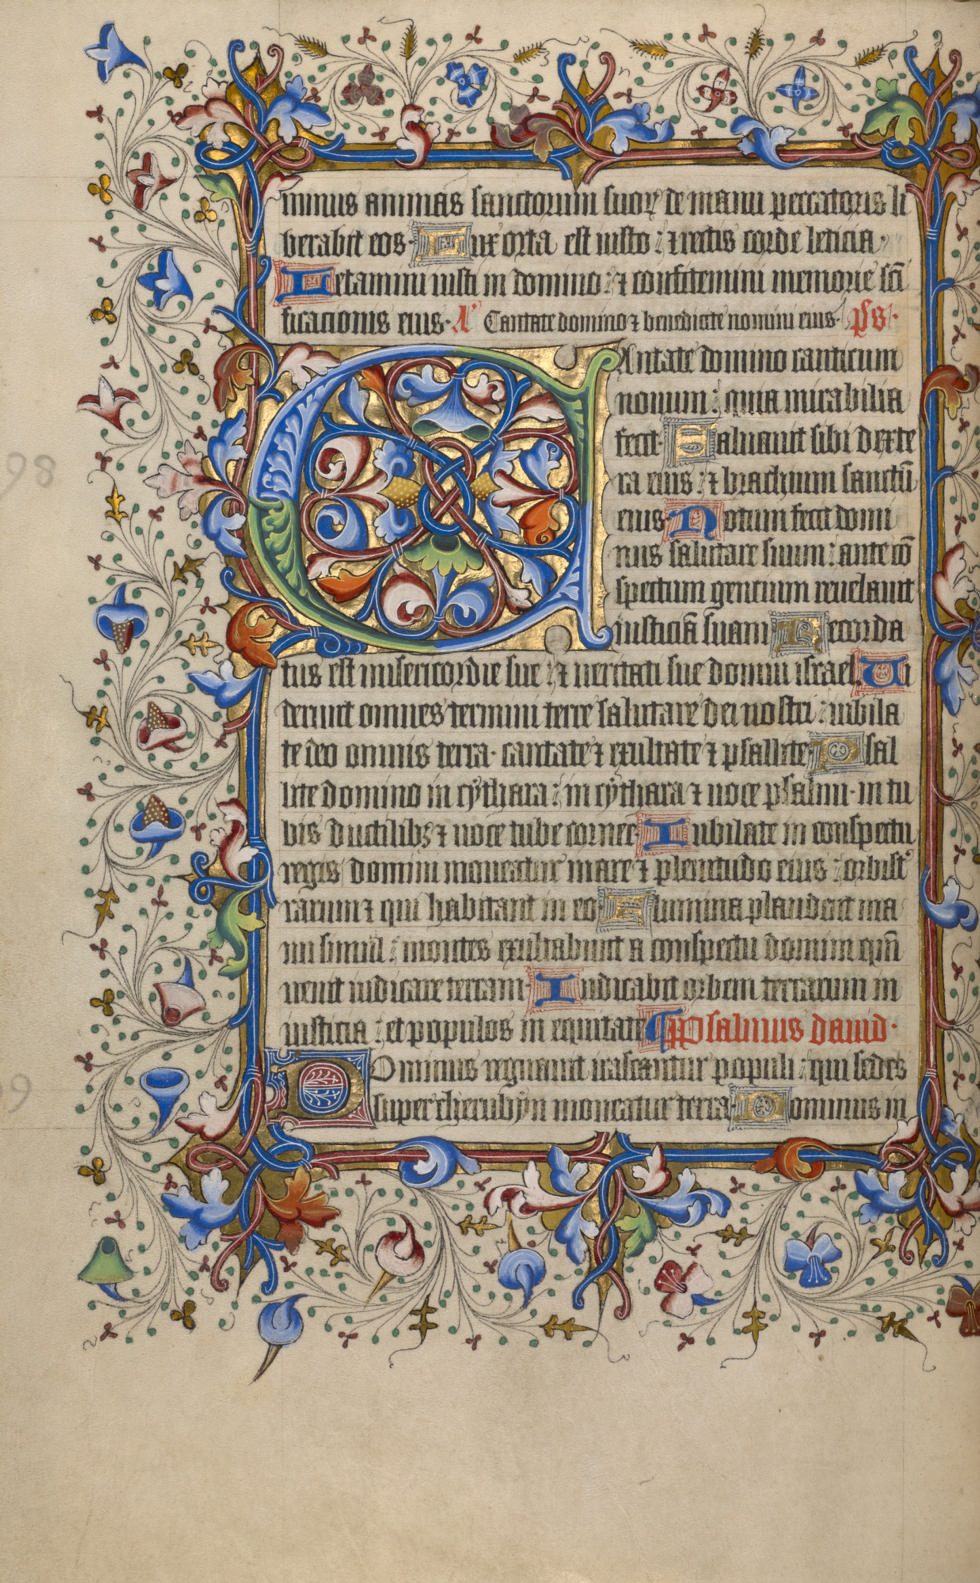 minus animas sanctorum suoꝝ de manu peccatoris li
berabit eos. Lux orta est iusto: ⁊ rectis corde leticia.
Letamini iusti in domino: ⁊ confitemini memorie sc̄i
ficacionis eius. A̓ Cantate domino ⁊ benedicite nomini eius. ps̄.
Cantate domino canticum
nouum: quia mirabilia
fecit Saluauit sibi dexte
ra eius: ⁊ brachium sanctū
eius. Notum fecit domi
nus salutare suum: ante cō
spectum gencium reuelauit
iusticiā suam Recorda
tus est misericordie sue: ⁊ ueritati sue domui israel. Ui
derunt omnes termini terre salutare dei nostri: iubila
te deo omnis terra. cantate ⁊ exultate ⁊ psallite Psal
lite domino in cythara: in cythara ⁊ uoce psalmi. in tu
bis ductilibꝫ ⁊ uoce tube cornee Iubilate in conspectu
regis domini moueatur mare ⁊ plenitudo eius: orbis t̓
rarum ⁊ qui habitant in eo Flumina plaudent ma
nu simul: montes exultabunt a conspectu domini qm̄
uenit iudicare terram. Iudicabit orbem terrarum in
iusticia: et populos in equitate ¶Psalmus dauid.
Dominus regnauit irascantur populi: qui sedes
super cherubyn moueatur terra. Dominus in
98
99